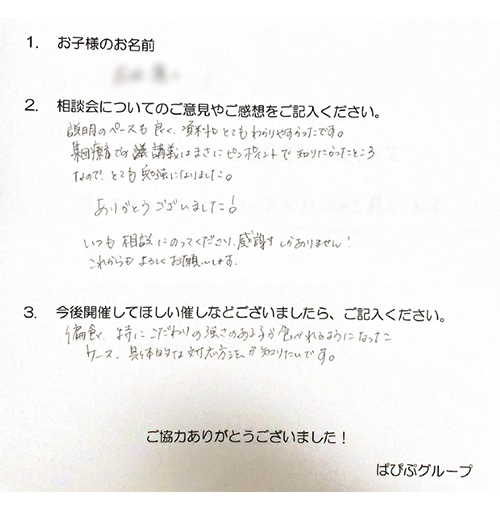 1. お子様のお名前
2. 相談会についてのご意見やご感想をご記入ください。
説明のペースも良く、資料もとてもわかりやすかったです。
集団療育での講義はまさにピンポイントで知りたかったところ
なので、とても勉強になりました。
ありがとうございました!
いつも相談にのってくださり、感謝しかありません!
これからもよろしくお願いします。
3. 今後開催してほしい催しなどございましたら、ご記入ください。
偏食、特にこだわりの強さのある子が食べれるようになった
ケース、具体的な対応方法が知りたいです。
ご協力ありがとうございました!
ぱぴぷグループ